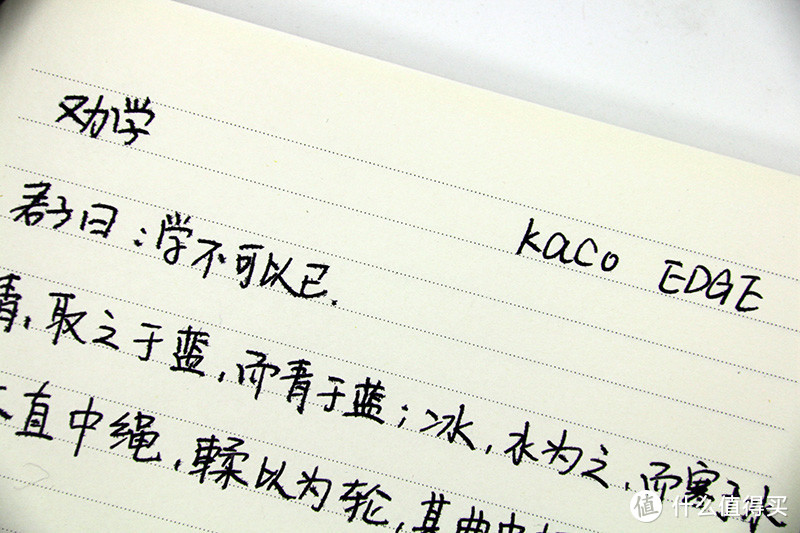 劝学
kaco EDGE
君子曰：学不可以已.
青，取之于蓝，而青于蓝；冰，水为之，而寒于水
木直中绳，輮以为轮，其曲中
值 什么值得买